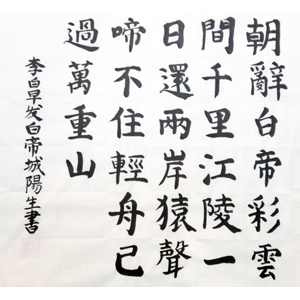 朝辭白帝彩雲
間千里江陵一
日還兩岸猿聲
啼不住輕舟已
過萬重山
李白早发白帝城陽生書